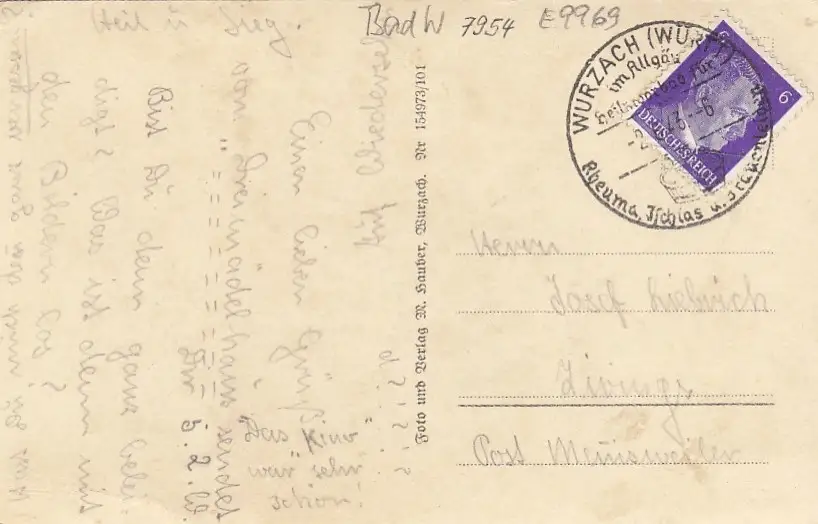 Bad W 7954 E9969
WURZACH (WÜRTT)
im Allgäu
Heilmoorbad für
Rheuma, Ischias u. Frauenleiden
6
DEUTSCHES REICH
Foto und Verlag M. Hauber, Wurzach. Nr 154973/101
Herrn
Josef
Post
Heil u Sieg.
Einen lieben Gruß
von "Dreimäderlhaus" sendet
Dir 5. 2.
Bist Du denn ganz belei-
digt? Was ist denn mit
den Bildern los?
Hast Du mich auch
"Das Kino"
war sehr
schön!
Auf Wiederseh